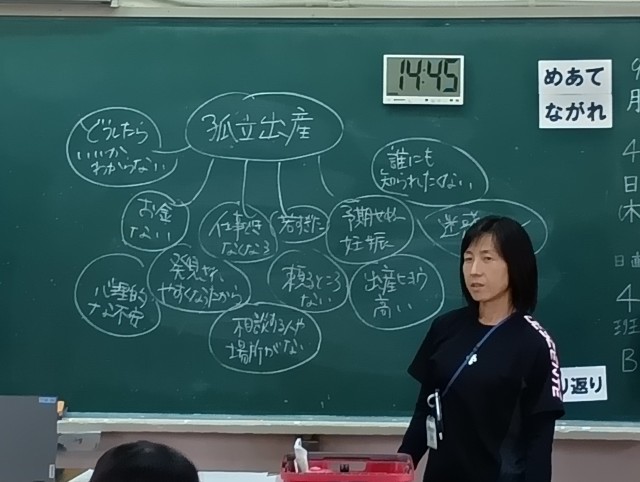 14:45
めあて
ながれ
孤立出産
どうしたら
いいか
わからない
誰にも
知られたくない
お金
ない
仕事でき
なくなる
若すぎた
予期せぬ
妊娠
心理的
な不安
やすくなるから
頼るところ
ない
出産ヒヨウ
高い
相談する人や
場所がない
月
4
日
(木
日直
4
班
B
り返り